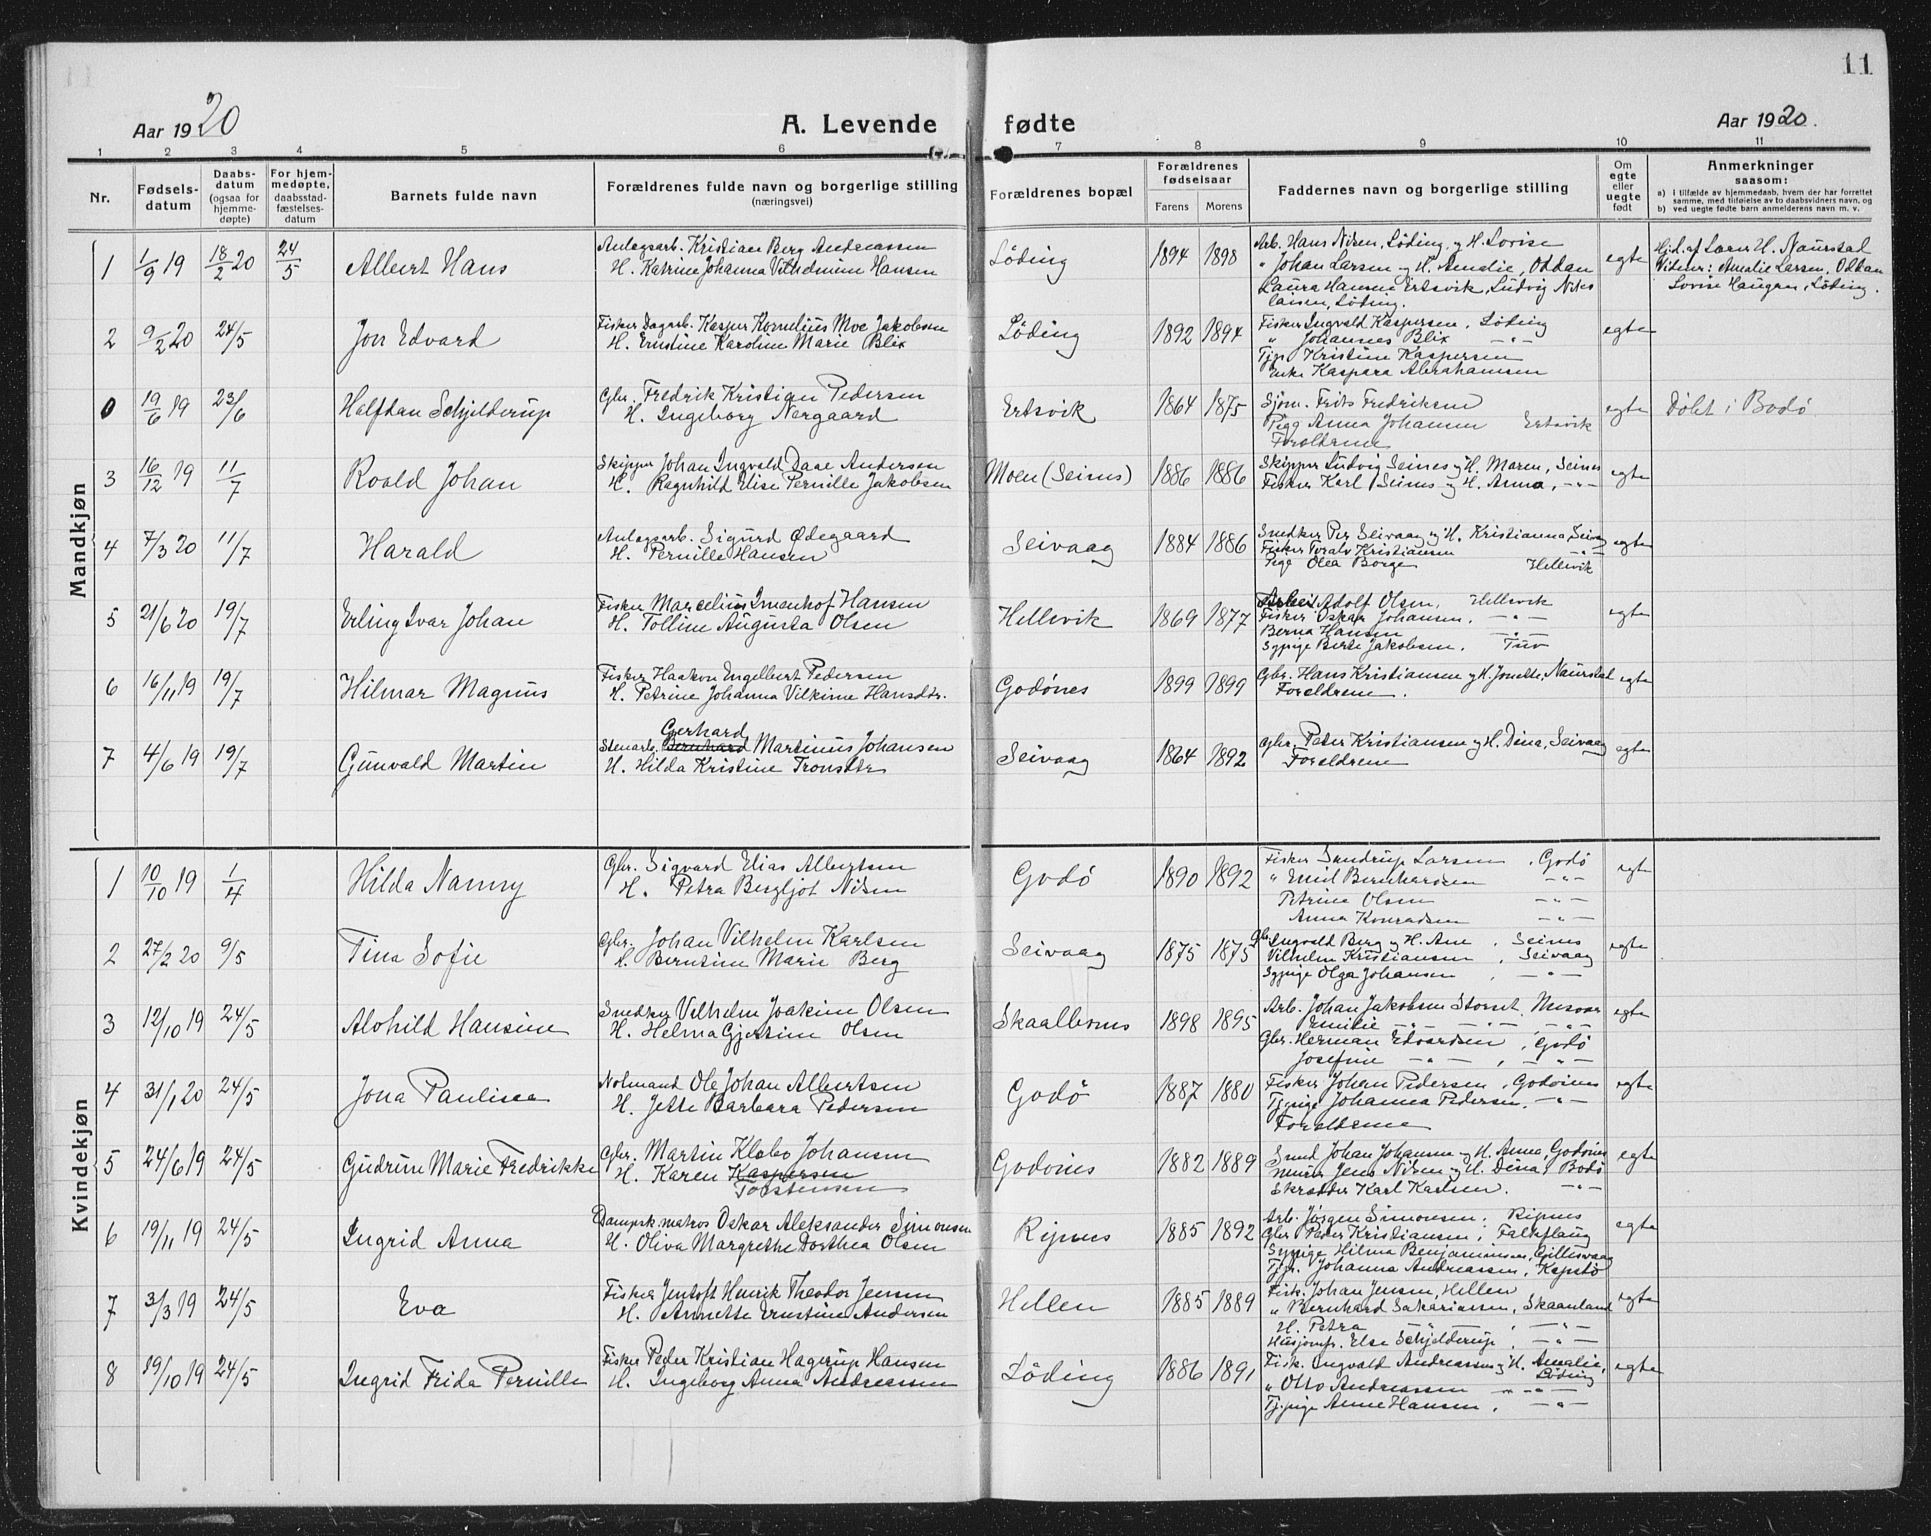 11
Aar 1920
A. Levende fødte
Aar 1920.
1 2 3 4 5 6 7 8 9 10 11
Nr.
Fødsels-
datum
Daabs-
datum
(ogsaa for
hjemme-
døpte)
For hjem-
medøpte,
daabsstad-
fæstelses-
datum
Barnets fulde navn
Forældrenes fulde navn og borgerlige stilling
(næringsvei)
Forældrenes bopæl
Forældrenes
fødselsaar
Farens Morens
Faddernes navn og borgerlige stilling
Om
egte
eller
uegte
født
Anmerkninger
saasom:
a) i tilfælde av hjemmedaab, hvem der har forrettet
samme, med tilføielse av to daabsvidners navn, og
b) ved uegte fødte barn anmelderens navn m. v.
Mandkjøn
1 1/9 19 18/2 20 24/5 Albert Hans
Anlagsarb. Kristian Berg Andreassen
H. Katrine Johanna Vilhelmine Hansen
Löding 1894 1898
Arb. Hans Nilsen, Löding, y H. Lovise
" Johan Larsen y H. Amalie, Oddan
Laura Hansen Ertsvik, Ludvig Niko
laisen, Löding.
egte
Hjd. af Lærer H. Naurstad
Vidner: Amalie Larsen, Oddan
Lovise Haugan, Löding.
2 9/2 20 24/5 Jon Edvard
Fisker Dagarb. Kasper Kornelius Moe Jakobsen
H. Ernstine Karoline Marie Blix
Löding 1892 1894
Fisker Ingvald Kaspersen, Löding
" Johannes Blix -"-
Tjp. Kristine Kaspersen
Enke Kaspara Abrahamsen
egte
0 19/6 19 23/6 Halfdan Schjelderup
Gbr. Fredrik Kristian Pedersen
H. Ingeborg Nergaard
Ertsvik 1864 1875
Sjöm. Frits Fredriksen
Pige Anna Johansen Ertsvik
Forældrene
egte
Döbt i Bodö
3 16/12 19 11/7 Roald Johan
Skipper Johan Ingvald Daae Andersen
H. Ragnhild Elise Pernille Jakobsen
Moen (Seines) 1886 1886
Skipper Ludvig Seines y H. Maren, Seines
Fisker Karl Seines y H. Anna, -"-
egte
4 7/3 20 11/7 Harald
Anlagsarb. Sigurd Ödegaard
H. Pernille Hansen
Seivaag 1884 1886
Snedker Per Seivaag y H. Kristianna, Seivaag
Fisker Toralv Kristiansen -"-
Pige Olea Borge Hellevik
egte
5 21/6 20 19/7 Erling Ivar Johan
Fisker Marcelius Imenhof Hansen
H. Tolline Augusta Olsen
Hellevik 1869 1877
Adolf Olsen, Hellevik
Fisker Oskar Johansen, -"-
Berna Hansen -"-
Sypige Berte Jakobsen. Tuv
egte
6 16/11 19 19/7 Hilmar Magnus
Fisker Haakon Engelbert Pedersen
H. Petrine Johanna Vilkine Hansdtr.
Godönes 1899 1899
Gbr. Hans Kristiansen y H. Jonette, Naurstad
Forældrene.
egte
7 4/6 19 19/7 Gunvald Martin
Gerhard
Stenarb. Bernhard Martinus Johansen
H. Hilda Kristine Tronsdtr
Seivaag 1864 1892
Gbr. Peder Kristiansen y H. Dina, Seivaag
Forældrene
egte
Kvindekjøn
1 10/10 19 1/4 Hilda Nanny
Gbr. Sigvard Elias Albertsen
H. Petra Bergljot Nilsen
Godö 1890 1892
Fisker Sandrup Larsen, Godö
" Emil Bernhardsen -"-
Petrine Olsen -"-
Anna Konradsen -"-
egte
2 27/2 20 9/5 Tina Sofie
Gbr. Johan Vilhelm Karlsen
H. Berntine Marie Berg
Seivaag 1875 1875
Gbr. Ingvald Berg y H. Ane, Seines
Vilhelm Kristiansen, Seivaag
Sypige Olga Johansen, -"-
egte
3 12/10 19 24/5 Alvhild Hansine
Snedker Vilhelm Joakim Olsen
H. Helma Gjertine Olsen
Skaalbones 1898 1895
Arb. Johan Jakobsen Storset,
Emilie -"- -"- -"-
Gbr. Herman Edvardsen, Godö
Josefine -"- , -"-
egte
4 31/1 20 24/5 Jona Paulisea
Notmand Ole Johan Albertsen
H. Jette Barbara Pedersen
Godö 1887 1880
Fisker Johan Pedersen, Godönes
Tjpige Johanna Pedersen, -"-
Forældrene
egte
5 24/6 19 24/5 Gudrun Marie Fredrikke
Gbr. Martin Klabo Johansen
H. Karen Kaspersen
Torstensen
Godönes 1882 1889
Smed Johan Johansen y H. Anna, Godönes
Murer Jens Nilsen y H. Dina, Bodö
Skrædder Karl Karlsen. -"-
egte
6 19/11 19 24/5 Ingrid Anna
Dampsk.matros Oskar Aleksander Simonsen
H. Oliva Margrethe Dorthea Olsen
Ripnes 1885 1892
Arb. Jörgen Simonsen, Ripnes
Gbr Peder Kristiansen, Falkflaug
Sypige Hilma Benjaminsen, Gillesvaag
Tjp. Johanna Andreassen, Kapstö
egte
7 3/3 19 24/5 Eva
Fisker Jentoft Henrik Theodor Jensen
H. Annette Ernstine Andersen
Hellen 1885 1889
Fisk. Johan Jensen, Hellen
" Bernhard Sakariassen, Skaanland
H. Petra -"- , -"-
Husjomfr. Else Schjelderup, -"-
egte
8 19/10 19 24/5 Ingrid Frida Pernille
Fisker Peder Kristian Hagerup Hansen
H. Ingeborg Anna Andreassen
Löding 1886 1891
Fisk. Ingvald Andreassen y H. Amalie,
Löding
" Otto Andreassen -"-
Tjpige Anne Hansen, -"-
egte